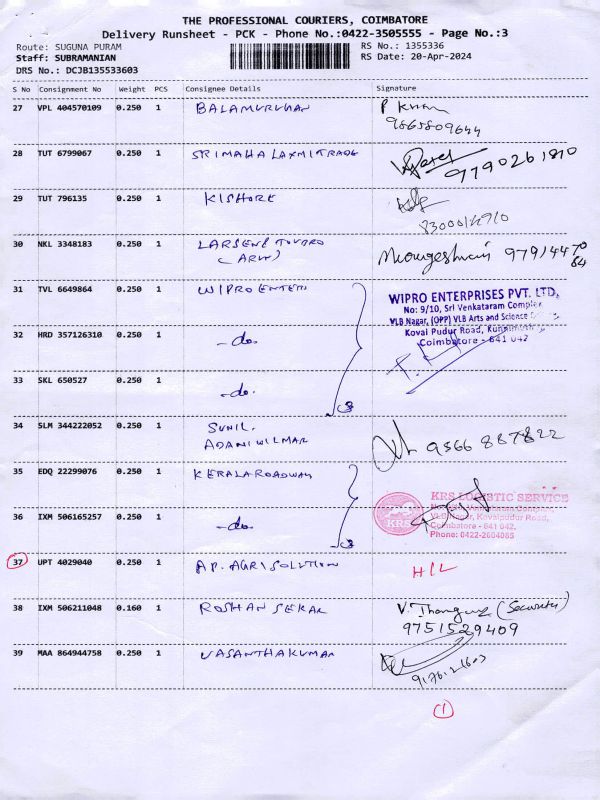 THE PROFESSIONAL COURIERS, COIMBATORE
Delivery Runsheet - PCK - Phone No.:0422-3505555 - Page No.:3
Route: SUGUNA PURAM
RS No.: 1355336
Staff: SUBRAMANIAN
RS Date: 20-Apr-2024
DRS No.: DCJB135533603
S No Consignment No Weight PCS Consignee Details Signature
27 VPL 404570109 0.250 1 BALAMURUHAN
9865809644
28 TUT 6799067 0.250 1 SRIMAHALAXMITRADE 9790261810
29 TUT 796135 0.250 1 KISHORE
30 NKL 3348183 0.250 1 LARSENE TOUBRO 97914470
(ARUN) 64
31 TVL 6649864 0.250 1 WIPRO ENTER
WIPRO ENTERPRISES PVT. LTD.
No: 9/10, Sri Venkataram Complex
VLB Nagar, (OPP) VLB Arts and Science
Kovai Pudur Road, Kuniamuthur
Coimbatore - 641 042
32 HRD 357126310 0.250 1 -do-
33 SKL 650527 0.250 1 -do-
34 SLM 344222052 0.250 1 SUNIL. 9566 887822
ADANI WILMAR
35 EDQ 22299076 0.250 1 KERALA ROADWAY
KRS LOGISTIC SERVICE
Kovaipudur Road,
Coimbatore - 641 042.
Phone: 0422-2604085
KRS
36 IXM 506165257 0.250 1 -do-
37 UPT 4029040 0.250 1 A.P. AGRI SOLUTION H/L
38 IXM 506211048 0.160 1 ROSHAN SEKAR V. (Security)
9751529409
39 MAA 864944758 0.250 1 VASANTHAKUMAR
1